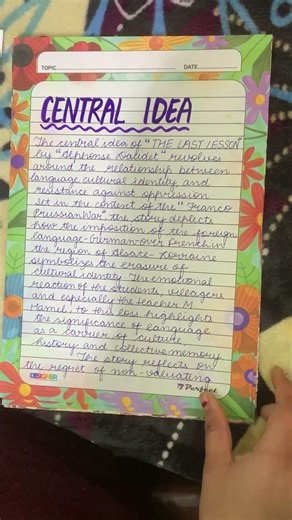 TOPIC DATE
CENTRAL IDEA
The central idea of "THE LAST LESSON"
by "Alphonse Daudet" revolves
around the relationship between
language, cultural identity, and
resistance against oppression.
Set in the context of the "Franco
Prussian War" the story depicts
how the imposition of the foreign
language-German-over french in
the region of Alsace-Lorraine
symbolizes the erasure of
cultural identity. The emotional
reaction of the students, villagers
and especially the teacher M.
Hamel, to this loss highlights
the significance of language
as a carrier of culture,
history and collective memory.
The story reflects on
the regret of non-valuating
DESIGNER Perfect